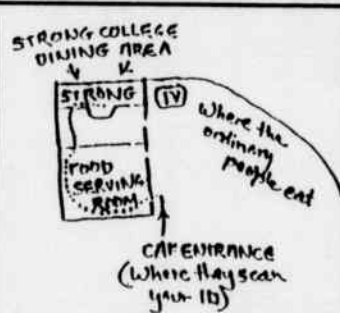 STRONG COLLEGE
DINING AREA
STRONG
TV
Where the
ordinary
people eat
FOOD
SERVING
ROOM
CAF ENTRANCE
(Where they scan
your ID)